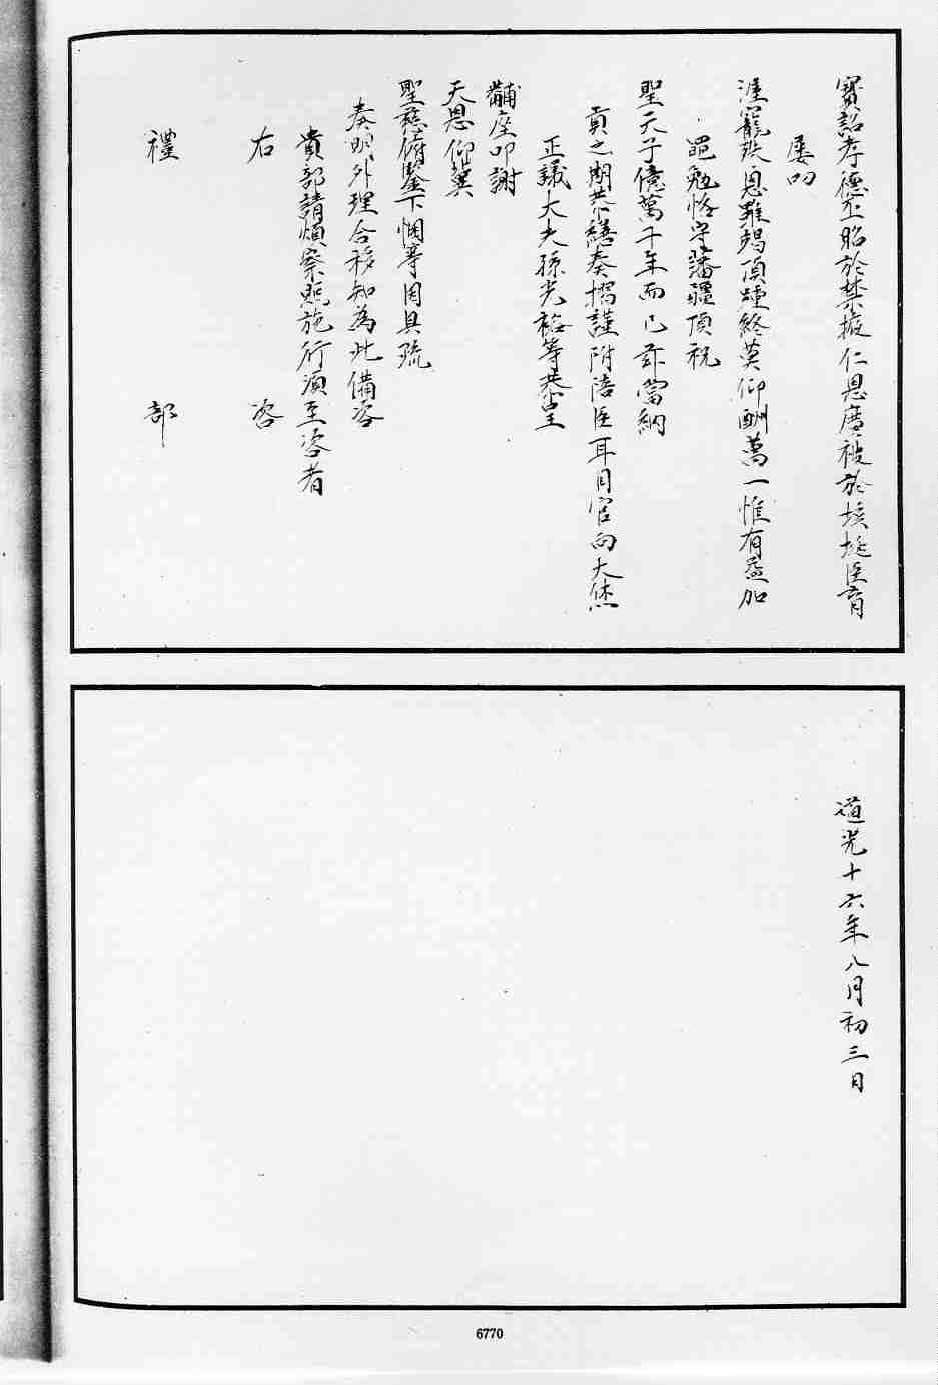 寶詔孝德丕昭於禁掖仁恩廣被於垓埏臣育
屢叨
湟寵跌恩難竭頂踵終莫仰酬萬一惟有益加
黽勉恪守藩疆頂祝
聖天子億萬千年而已茲當納
貢之期恭繕奏摺謹附陪臣耳目官向大烋
正議大夫孫光裕等恭呈
黼座叩謝
天恩仰冀
聖慈俯鑒下悃等因具疏
奏明外理合移知為此備咨
貴部請煩察照施行須至咨者
右 咨
禮 部
道光十六年八月初三日
6770